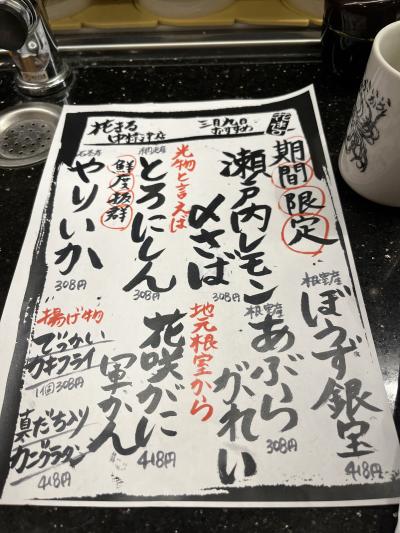 花まる
中標津店
三月九日
おすすめ
期間限定
瀬戸内レモン
〆さば
308円
光物と言えば
とろにしん
308円
鮮度抜群
やりいか
308円
根室産
ぼうず銀宝
418円
根室産
あぶら
がれい
308円
地元根室から
花咲がに
軍かん
418円
揚げ物
でっかい
カキフライ
1個308円
真だち入り
カニグラタン
418円